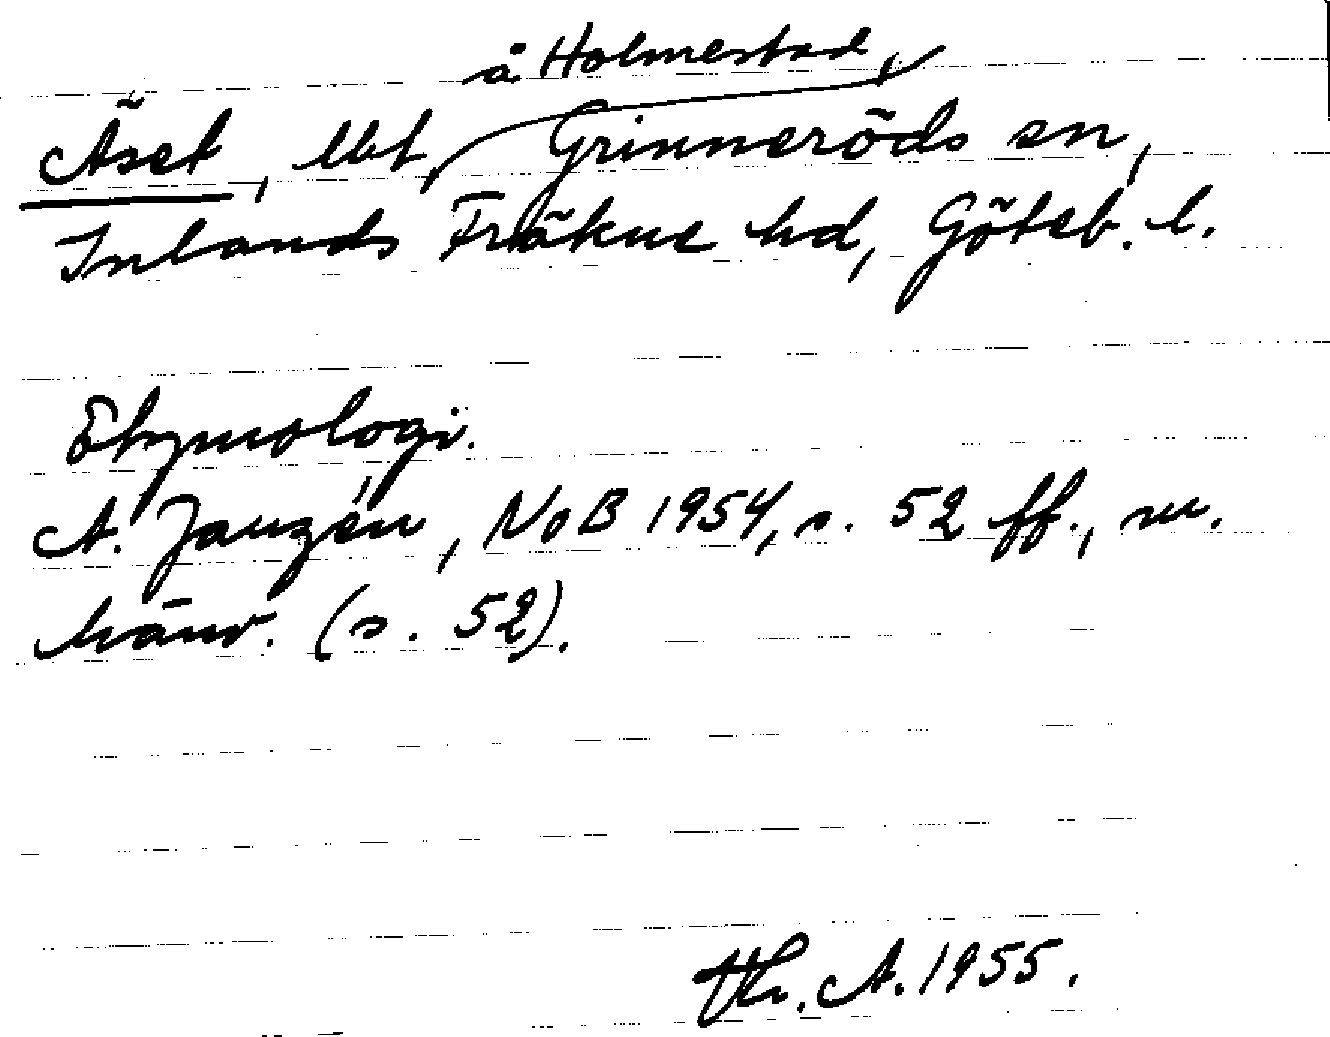 å Holmestad,
Äset, lht, Grinneröds sn,
Inlands Fräkne hd, Göteb. l.
Etymologi.
A. Janzén, NoB 1954, s. 52 ff., m.
hänv. (s. 52).
Th. A. 1955.